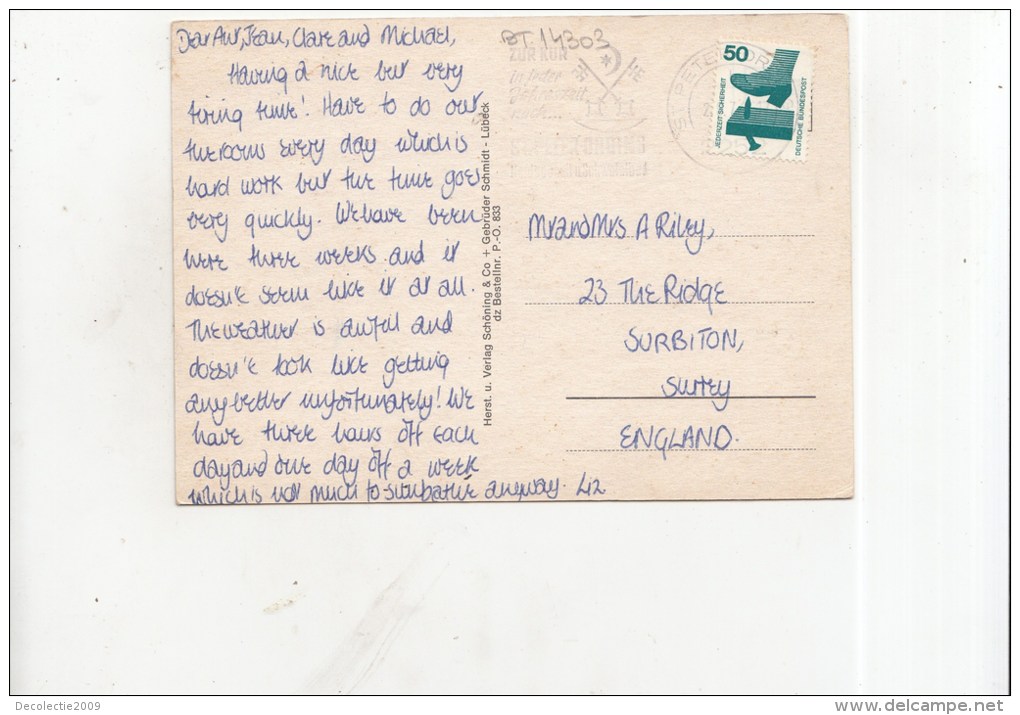 Dear Aut, Jean, Clare and Michael,
Having a nice but very
tiring time! Have to do out
the rooms every day which is
hard work but the time goes
very quickly. We have been
here three weeks and it
doesn't seem like it at all.
The weather is awful and
doesn't look like getting
any better unfortunately! We
have three hours off each
day and one day off a week
which is not much to sunbathe anyway. Liz
Herst. u. Verlag Schöning & Co + Gebrüder Schmidt - Lübeck
dz Bestellnr. P.-O. 833
BT 14303
ZUR KUR
in jeder
50
JEDERZEIT SICHERHEIT
DEUTSCHE BUNDESPOST
Mr and Mrs A Riley,
23 The Ridge
SURBITON,
Surrey
ENGLAND.
Decolectie2009
www.delcampe.net